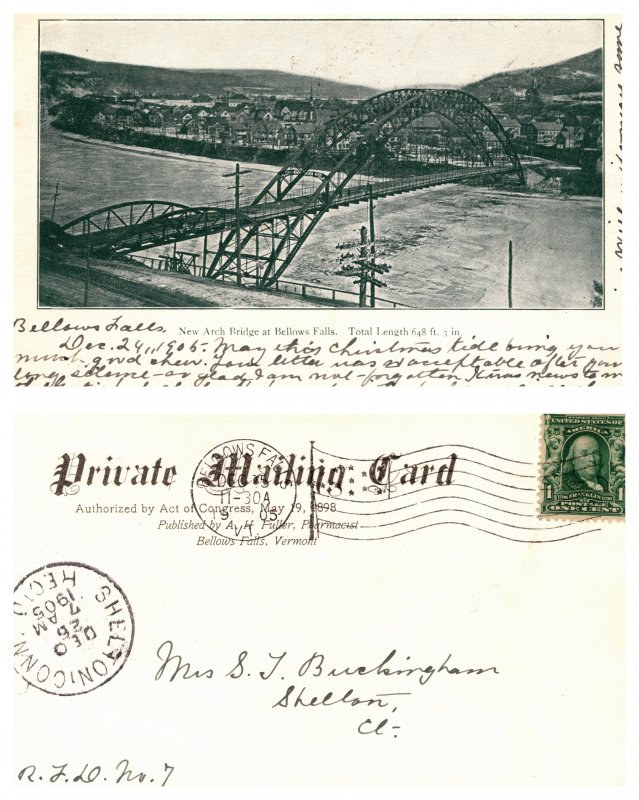 New Arch Bridge at Bellows Falls. Total Length 648 ft. 3 in.
Bellows Falls.
Dec. 24, 1905. May this Christmas tide bring you
much good cheer. Your letter was so acceptable after your
long silence — so glad I am not forgotten. It was news to m
will
some
Private Mailing Card
Authorized by Act of Congress, May 19, 1898
Published by A. H. Fuller, Pharmacist
Bellows Falls, Vermont
BELLOWS FALLS
DEC
11-30A
1905
VT.
U.S.
AMERICA
1
FRANKLIN
POSTAGE
ONE CENT
SHELTON, CONN.
REC'D
DEC
26
7 AM
1905
Mrs S. T. Buckingham
Shelton,
Ct.
R. F. D. No. 7